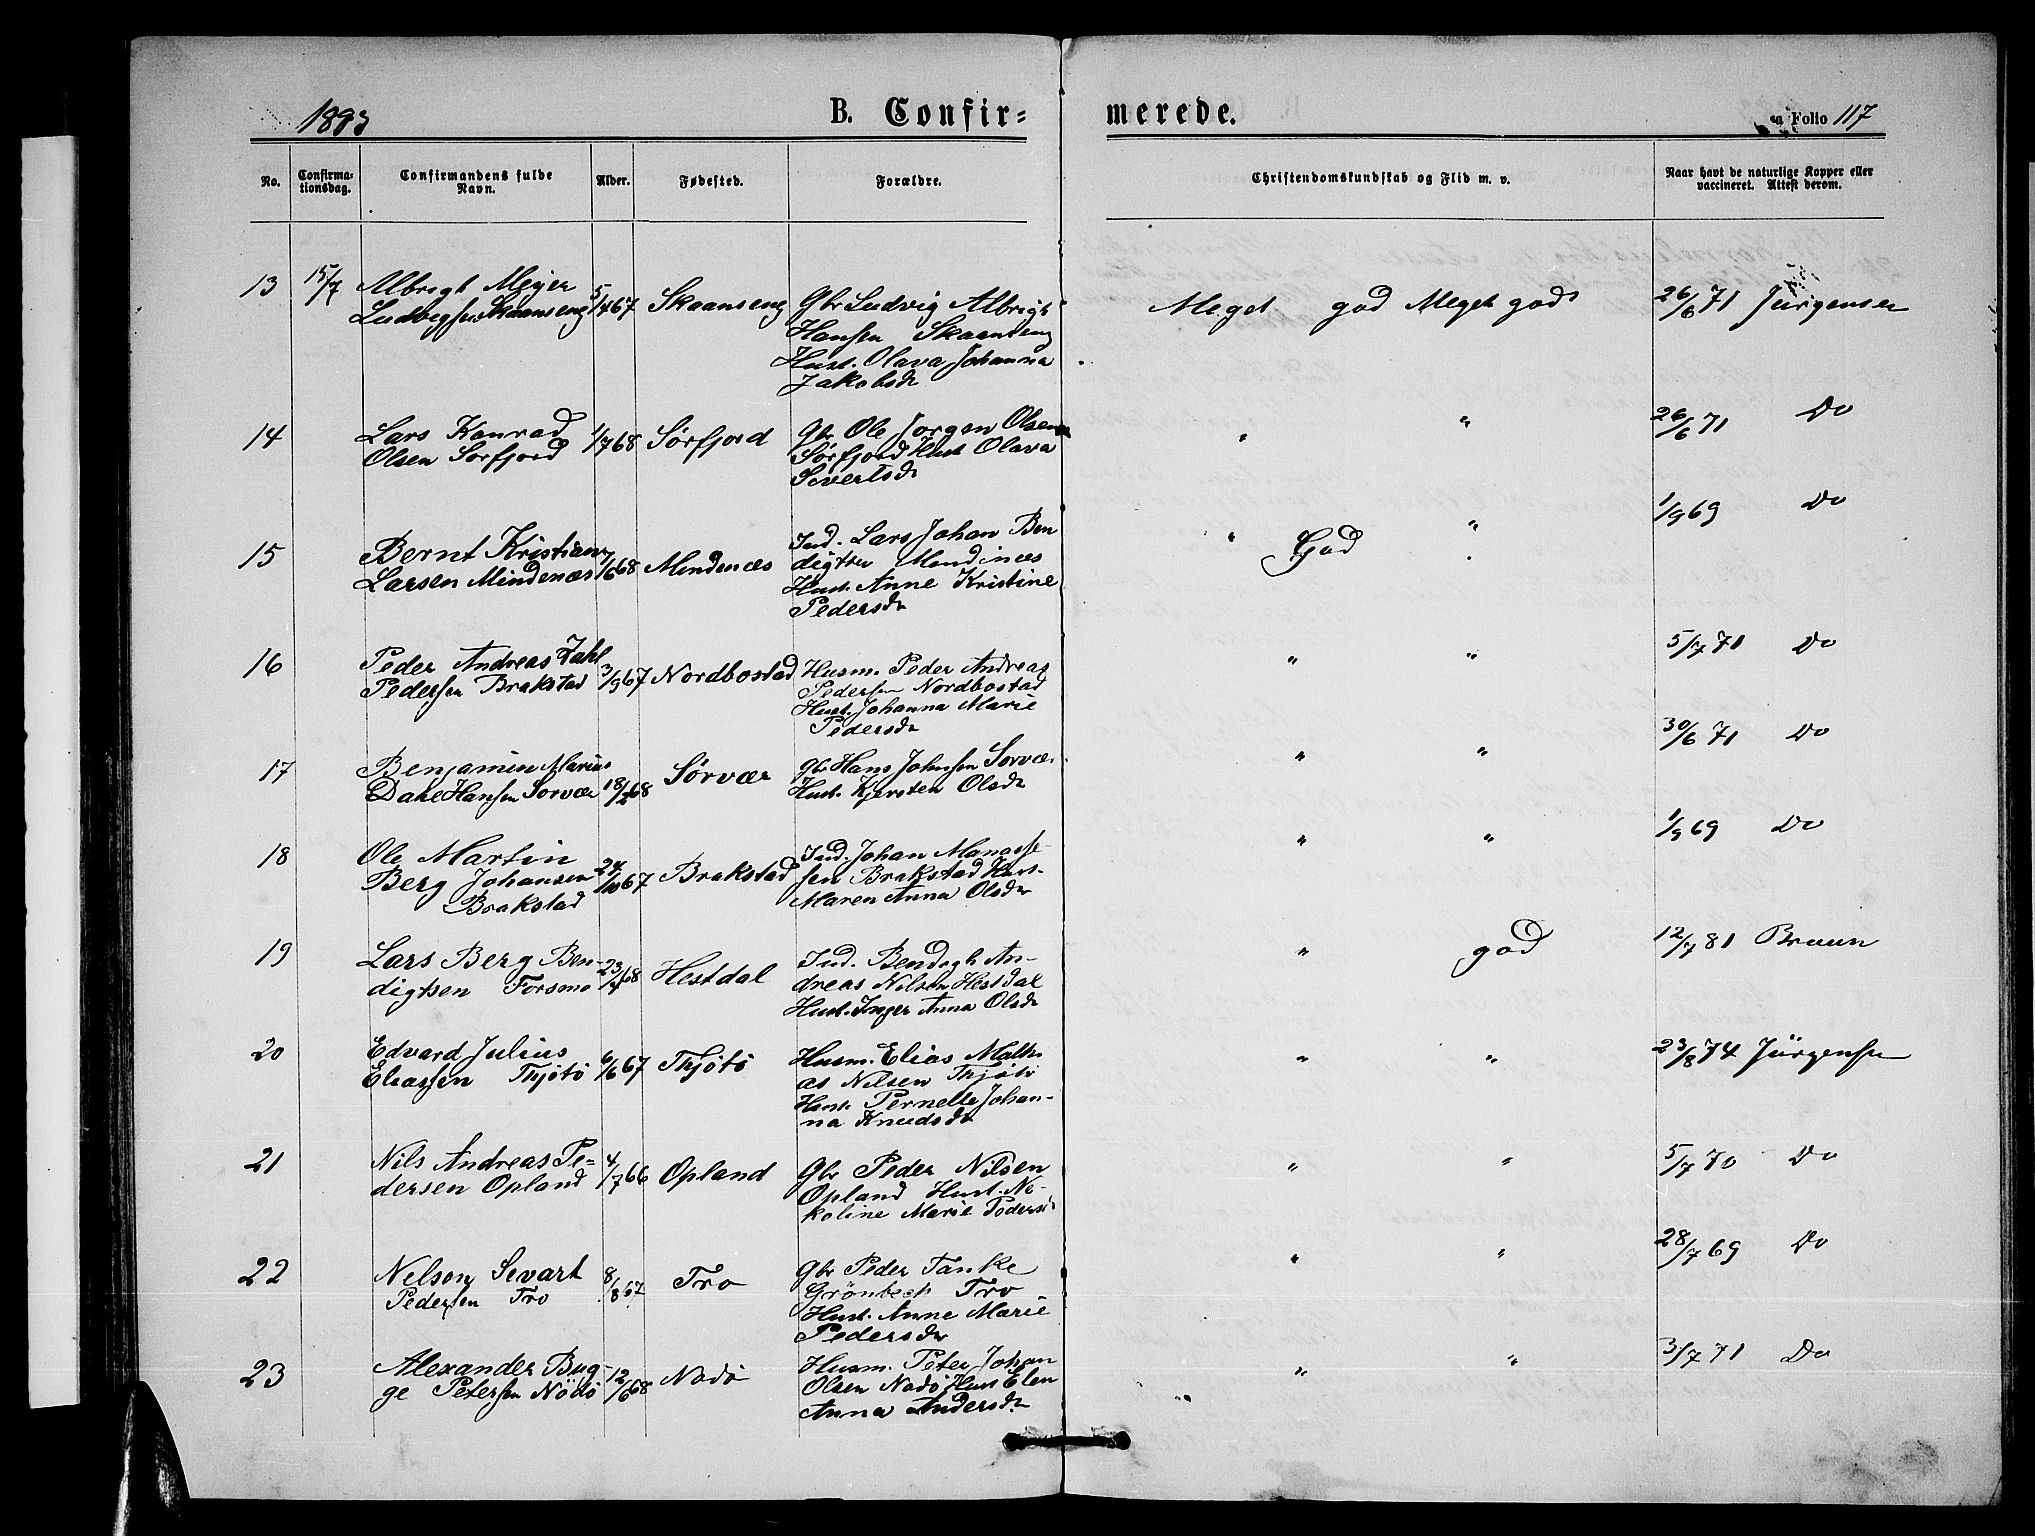 1893 B. Confir= merede. Folio 117
No. Confirma=tionsdag. Confirmandens fulde Navn. Alder. Fødested. Forældre. Christendomskundskab og Flid m. v. Naar havt de naturlige Kopper eller vaccineret. Attest derom.
13 15/7 Albrigt Meyer 5/4 67 Skaanseng Gbr Ludvig Albrigt Meget god Meget god 26/6 71 Jürgensen
Ludvigsen Skaanseng Hansen Skaanseng
Hust. Olava Johanna
Jakobsdr
14 Lars Konrad 1/7 68 Sørfjord Gbr Ole Jørgen Olsen " " 26/6 71 Do
Olsen Sørfjord Sørfjord Hust Olava
Sivertsdr
15 Bernt Kristian 7/6 68 Mindenæs Ind. Lars Johan Ben " God " 1/9 69 Do
Larsen Mindenæs digtsen Mindinæs
Hust. Anne Kristine
Pedersdr
16 Peder Andreas Zahl 3/9 67 Nordbostad Husm. Peder Andreas " " 5/7 71 Do
Pedersen Brakstad Pedersen Nordbostad
Hust. Johanna Marie
Pedersdr
17 Benjamin Marius 18/2 68 Sørvær Gbr Hans Johnsen Sørvær " " 30/6 71 Do
Dahl Hansen Sørvær Hust. Kjersten Olsdr
18 Ole Martin 24/10 67 Brakstad Ind. Johan Manasse- " " 1/9 69 Do
Berg Johansen sen Brakstad Hust.
Brakstad Maren Anna Olsdr
19 Lars Berg Ben- 23/4 68 Hestdal Ind. Bendigt An- " god 12/7 81 Bruun
digtsen Forsmo dreas Nilsen Hestdal
Hust. Inger Anna Olsdr
20 Edvard Julius 6/6 67 Thjøtø Husm. Elias Math- " " 23/8 74 Jürgensen
Eliassen Thjøtø as Nilsen Thjøtø
Hust. Pernelle Johan-
na Knudsdr
21 Nils Andreas Pe= 4/7 66 Opland Gbr Peder Nilsen " " 5/7 70 Do
dersen Opland Opland Hust. Ni-
koline Marie Pedersd
22 Nelson Sevart 8/8 67 Tro Gbr Peder Tanke " " 28/7 69 Do
Pedersen Tro Grønbech Tro
Hust. Anne Marie
Pedersdr
23 Alexander Bug- 12/6 68 Nødø Husm. Peter Johan " " 3/7 71 Do
ge Petersen Nødø Olsen Nødø Hust Elen "
Anna Andersdr